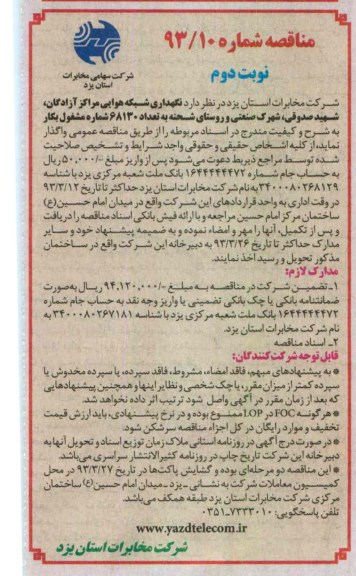 مناقصه شماره ۹۳/۱۰
شرکت سهامی مخابرات
استان یزد
نوبت دوم
شرکت مخابرات استان یزد در نظر دارد نگهداری شبکه هوایی مراکز آزادگان،
شهید صدوقی، شهرک صنعتی و روستای شحنه به تعداد ۶۸۱۳۰ شماره مشغول بکار
به شرح و کیفیت مندرج در اسناد مربوطه را از طریق مناقصه عمومی واگذار
نماید، از کلیه اشخاص حقیقی و حقوقی واجد شرایط و تشخیص صلاحیت
شده توسط مراجع ذیربط دعوت می‌شود پس از واریز مبلغ -/۵۰,۰۰۰ ریال
به حساب جام شماره ۱۶۴۴۴۴۴۴۷۲ بانک ملت شعبه مرکزی یزد با شناسه
۳۴۰۰۰۸۰۲۶۸۱۲۹ به نام شرکت مخابرات استان یزد حداکثر تا تاریخ ۹۳/۳/۱۲
در وقت اداری به واحد قراردادهای این شرکت واقع در میدان امام حسین(ع)
ساختمان مرکز امام حسین مراجعه و با ارائه فیش بانکی اسناد مناقصه را دریافت
و پس از تکمیل، آنها را مهر و امضاء نموده و به ضمیمه پیشنهاد خود و سایر
مدارک حداکثر تا تاریخ ۹۳/۳/۲۶ به دبیرخانه این شرکت واقع در ساختمان
مذکور تحویل و رسید اخذ نمایند.
مدارک لازم:
۱- تضمین شرکت در مناقصه به مبلغ -/۹۴,۱۲۰,۰۰۰ ریال به‌صورت
ضمانتنامه بانکی یا چک بانکی تضمینی یا واریز وجه نقد به حساب جام شماره
۱۶۴۴۴۴۴۴۷۲ بانک ملت شعبه مرکزی یزد با شناسه ۳۴۰۰۰۸۰۲۶۷۱۸۱ به
نام شرکت مخابرات استان یزد.
۲- اسناد مناقصه
قابل توجه شرکت‌کنندگان:
* به پیشنهادهای مبهم، فاقد امضاء، مشروط، فاقد سپرده، یا سپرده مخدوش یا
سپرده کمتر از میزان مقرر، یا چک شخصی و نظایر اینها و همچنین پیشنهادهایی
که بعد از زمان مقرر در آگهی واصل شود ترتیب اثر داده نخواهد شد.
* هرگونه FOC در LOP ممنوع بوده و در نرخ پیشنهادی، باید ارزش قیمت
تخفیف و موارد رایگان در کل اجزاء مناقصه سرشکن شود.
* در صورت درج آگهی در روزنامه استانی ملاک زمان توزیع اسناد و تحویل آنها به
دبیرخانه این شرکت تاریخ چاپ در روزنامه کثیرالانتشار سراسری می‌باشد.
* این مناقصه دو مرحله‌ای بوده و گشایش پاکت‌ها در تاریخ ۹۳/۳/۲۷ در محل
کمیسیون معاملات شرکت به نشانی ـ یزد ـ میدان امام حسین(ع) ساختمان
مرکزی شرکت مخابرات استان یزد طبقه همکف می‌باشد.
تلفن پاسخگویی: ۷۲۳۳۰۱۰-۰۳۵۱
www.yazdtelecom.ir
شرکت مخابرات استان یزد